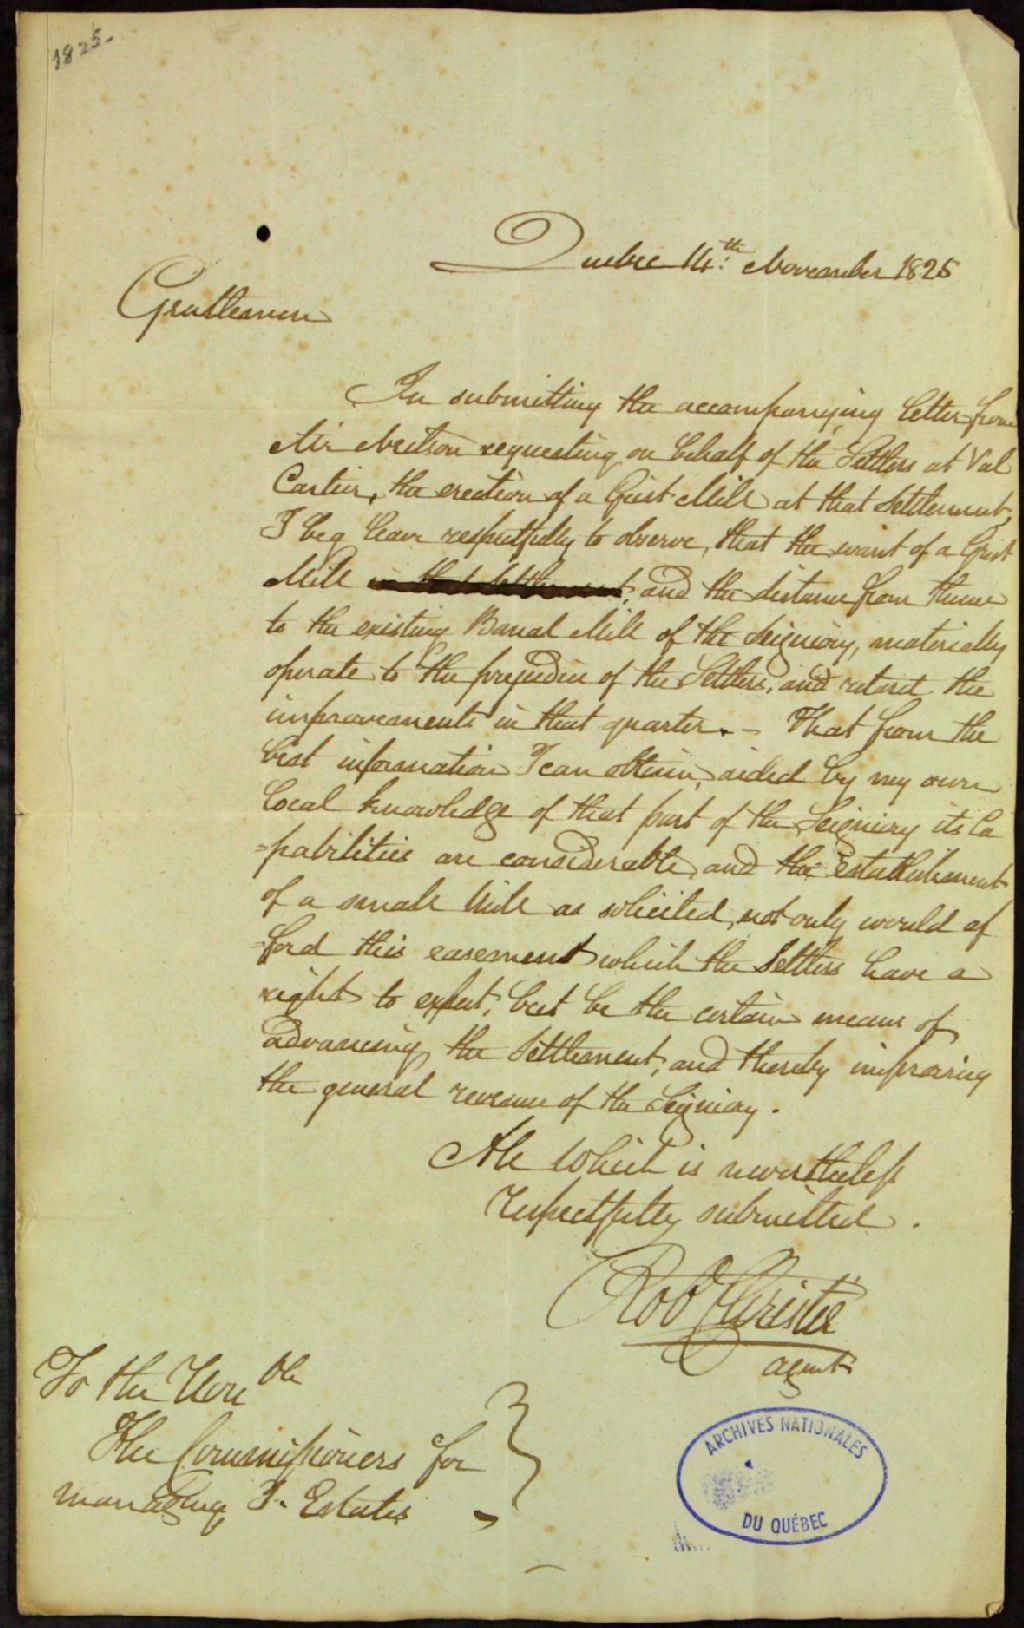 1825-
Quebec 14:th November 1825
Gentlemen
In submitting the accompanying letter from
Mr Neilson requesting on behalf of the Settlers at Val
Cartier, the erection of a Grist Mill at that Settlement,
I beg leave respectfully to observe, that the want of a Grist
Mill in that Settlement, and the distance from thence
to the existing Banal Mill of the Seigniory, materially
operate to the prejudice of the Settlers, and retard the
improvements in that quarter. - That from the
best information I can obtain, aided by my own
local knowledge of that part of the Seigniory its Ca
-pabilities are considerable, and the Establishment
of a small Mill as solicited, not only would af
-ford this easement which the Settlers have a
right to expect, but be the certain means of
advancing the Settlement, and thereby improving
the general revenue of the Seigniory.
All which is nevertheless
respectfully submitted.
Robt Christie
agent
To the Honble
The Commissioners for
managing J. Estates
ARCHIVES NATIONALES
DU QUÉBEC